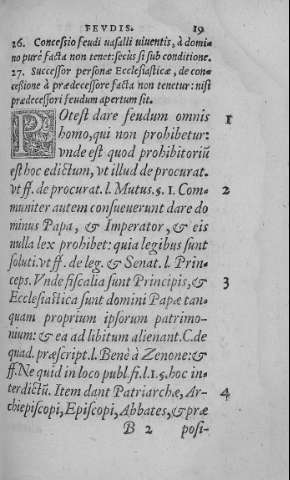 FEVDIS. 19
26. Concessio feudi uasalli uiuentis, à domi-
no purè facta non tenet: secùs si sub conditione.
27. Successor personæ Ecclesiasticæ, de con-
cessione à prædecessore facta non tenetur: nisi
prædecessori feudum apertum sit.
POtest dare feudum omnis 1
homo, qui non prohibetur:
vnde est quod prohibitoriũ
est hoc edictum, vt illud de procurat.
vt ff. de procurat. l. Mutus. §. 1. Com- 2
muniter autem consueuerunt dare do
minus Papa, & Imperator, & eis
nulla lex prohibet: quia legibus sunt
soluti. vt ff. de leg. & Senat. l. Prin-
ceps. Vnde fiscalia sunt Principis, & 3
Ecclesiastica sunt domini Papæ tan-
quam proprium ipsorum patrimo-
nium: & ea ad libitum alienant. C. de
quad. præscript. l. Benè à Zenone: &
ff. Ne quid in loco publ. fi. l. 1. §. hoc in-
terdictũ. Item dant Patriarchæ, Ar- 4
chiepiscopi, Episcopi, Abbates, & præ
B 2 posi-